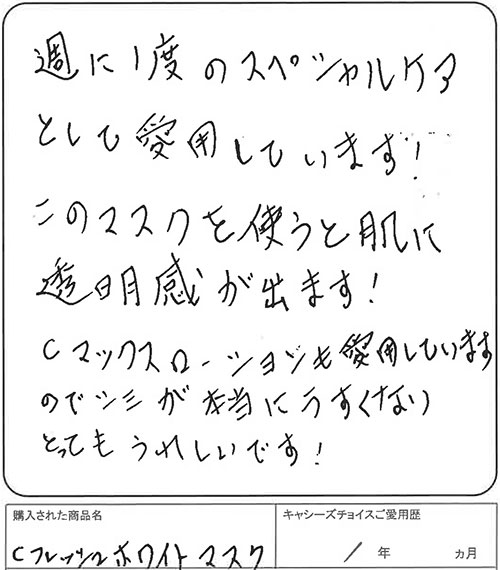 週に1度のスペシャルケア
として愛用しています!
このマスクを使うと肌に
透明感が出ます!
Cマックスローションも愛用しています
のでシミが本当にうすくなり
とってもうれしいです!
購入された商品名
キャシーズチョイスご愛用歴
Cフレッシュホワイトマスク
1年 ヵ月